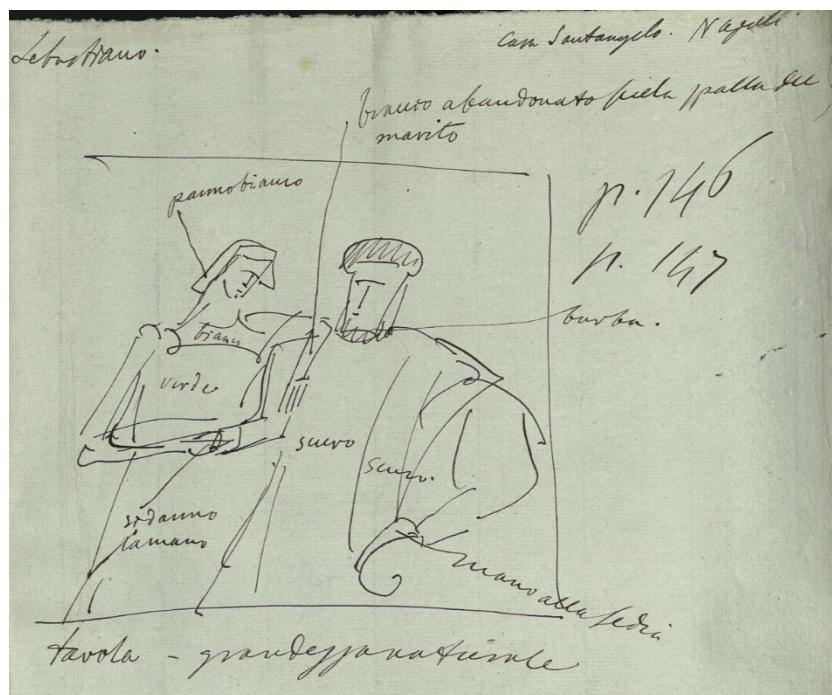 Sebastiano.
Casa Santangelo. Napoli
braccio abandonato sulla spalla del
marito
p. 146
p. 147
panno bianco
barba.
bianco
verde
scuro
scuro.
si danno
la mano
mano alla sedia
tavola - grandezza naturale